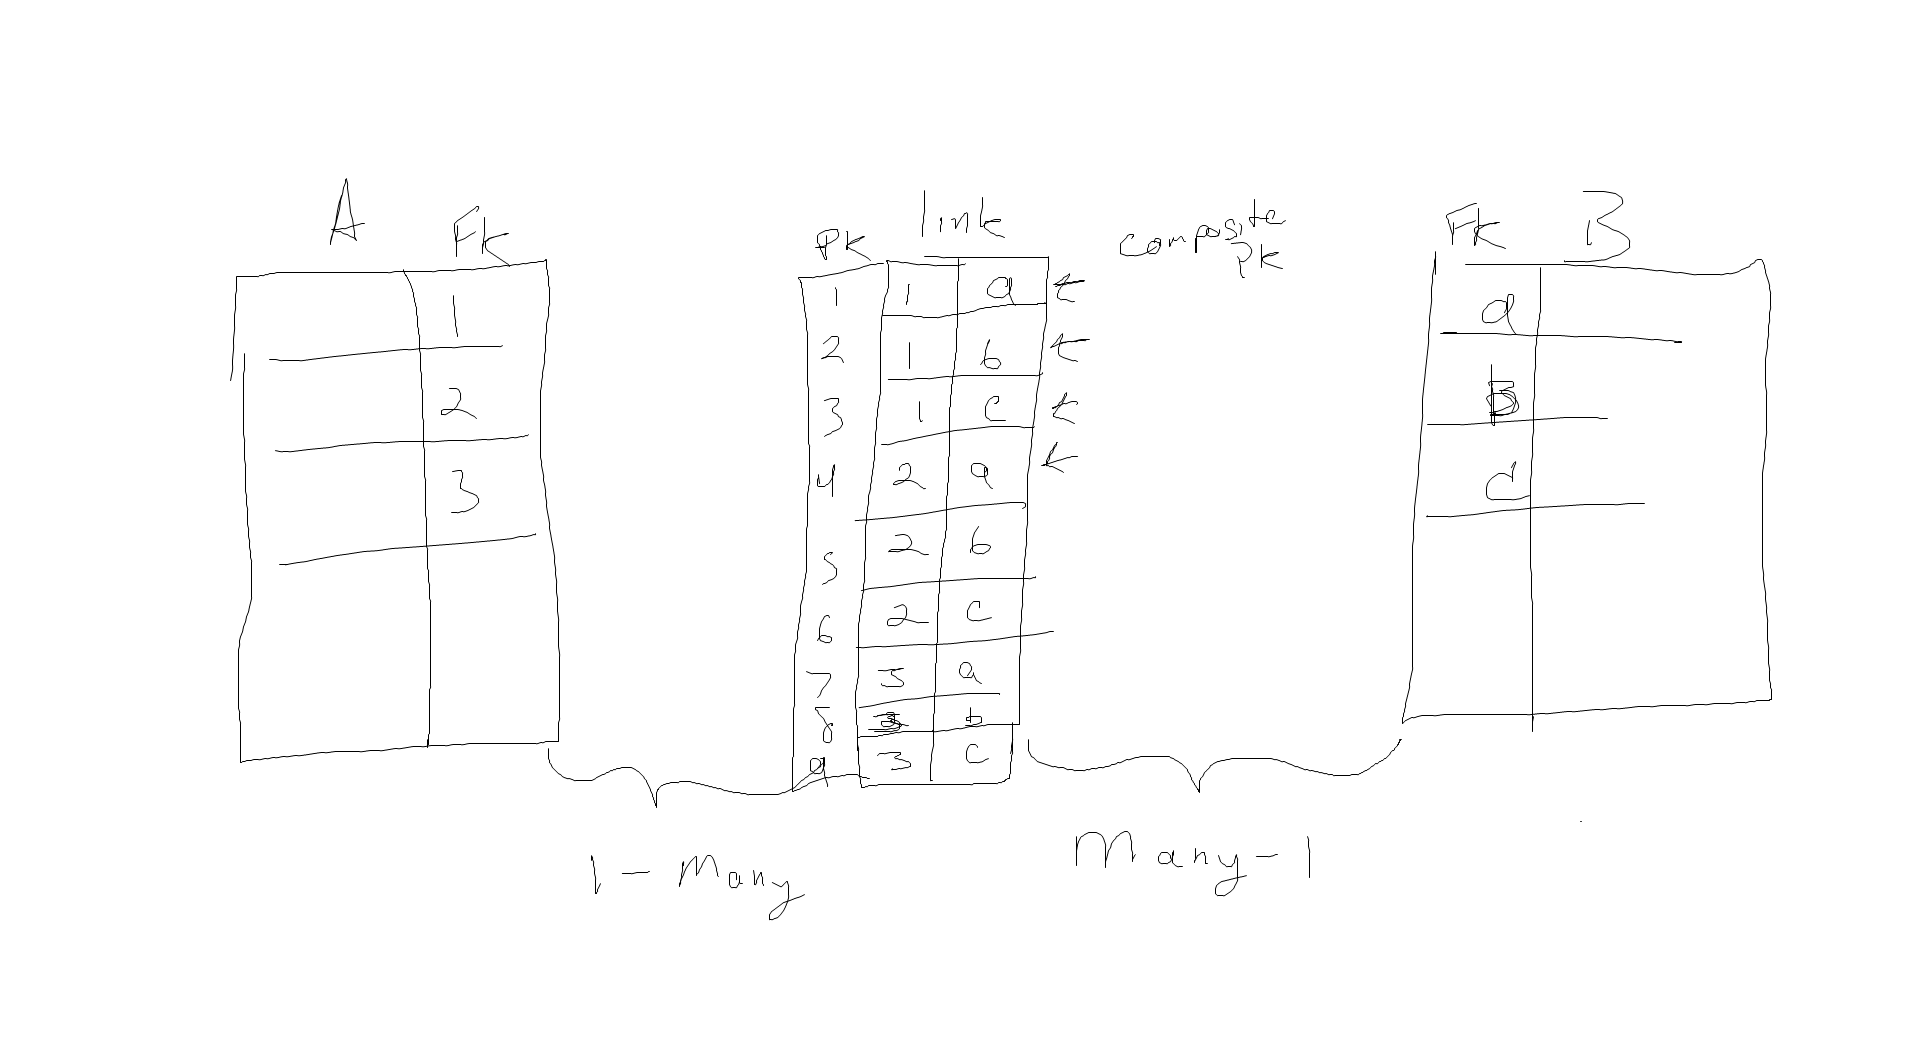 A Fk
1
2
3
Pk link
1 1 a
2 1 b
3 1 c
4 2 a
5 2 b
6 2 c
7 3 a
8 3 b
9 3 c
composite
Pk
Fk B
a
b
c
1 - Many
Many - 1